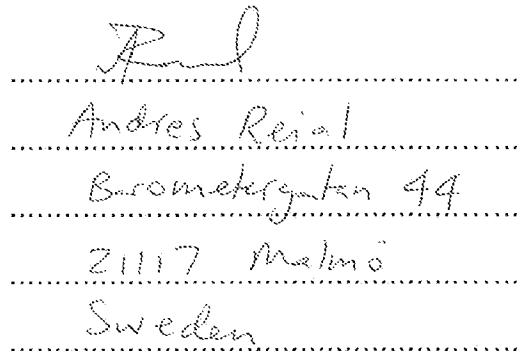 Andres Reial
Barometergatan 44
21117 Malmö
Sweden